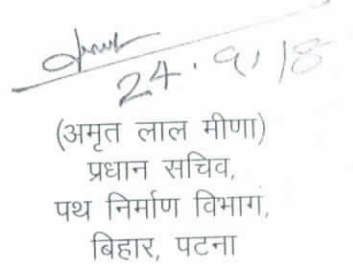 24.9.18
(अमृत लाल मीणा)
प्रधान सचिव,
पथ निर्माण विभाग,
बिहार, पटना